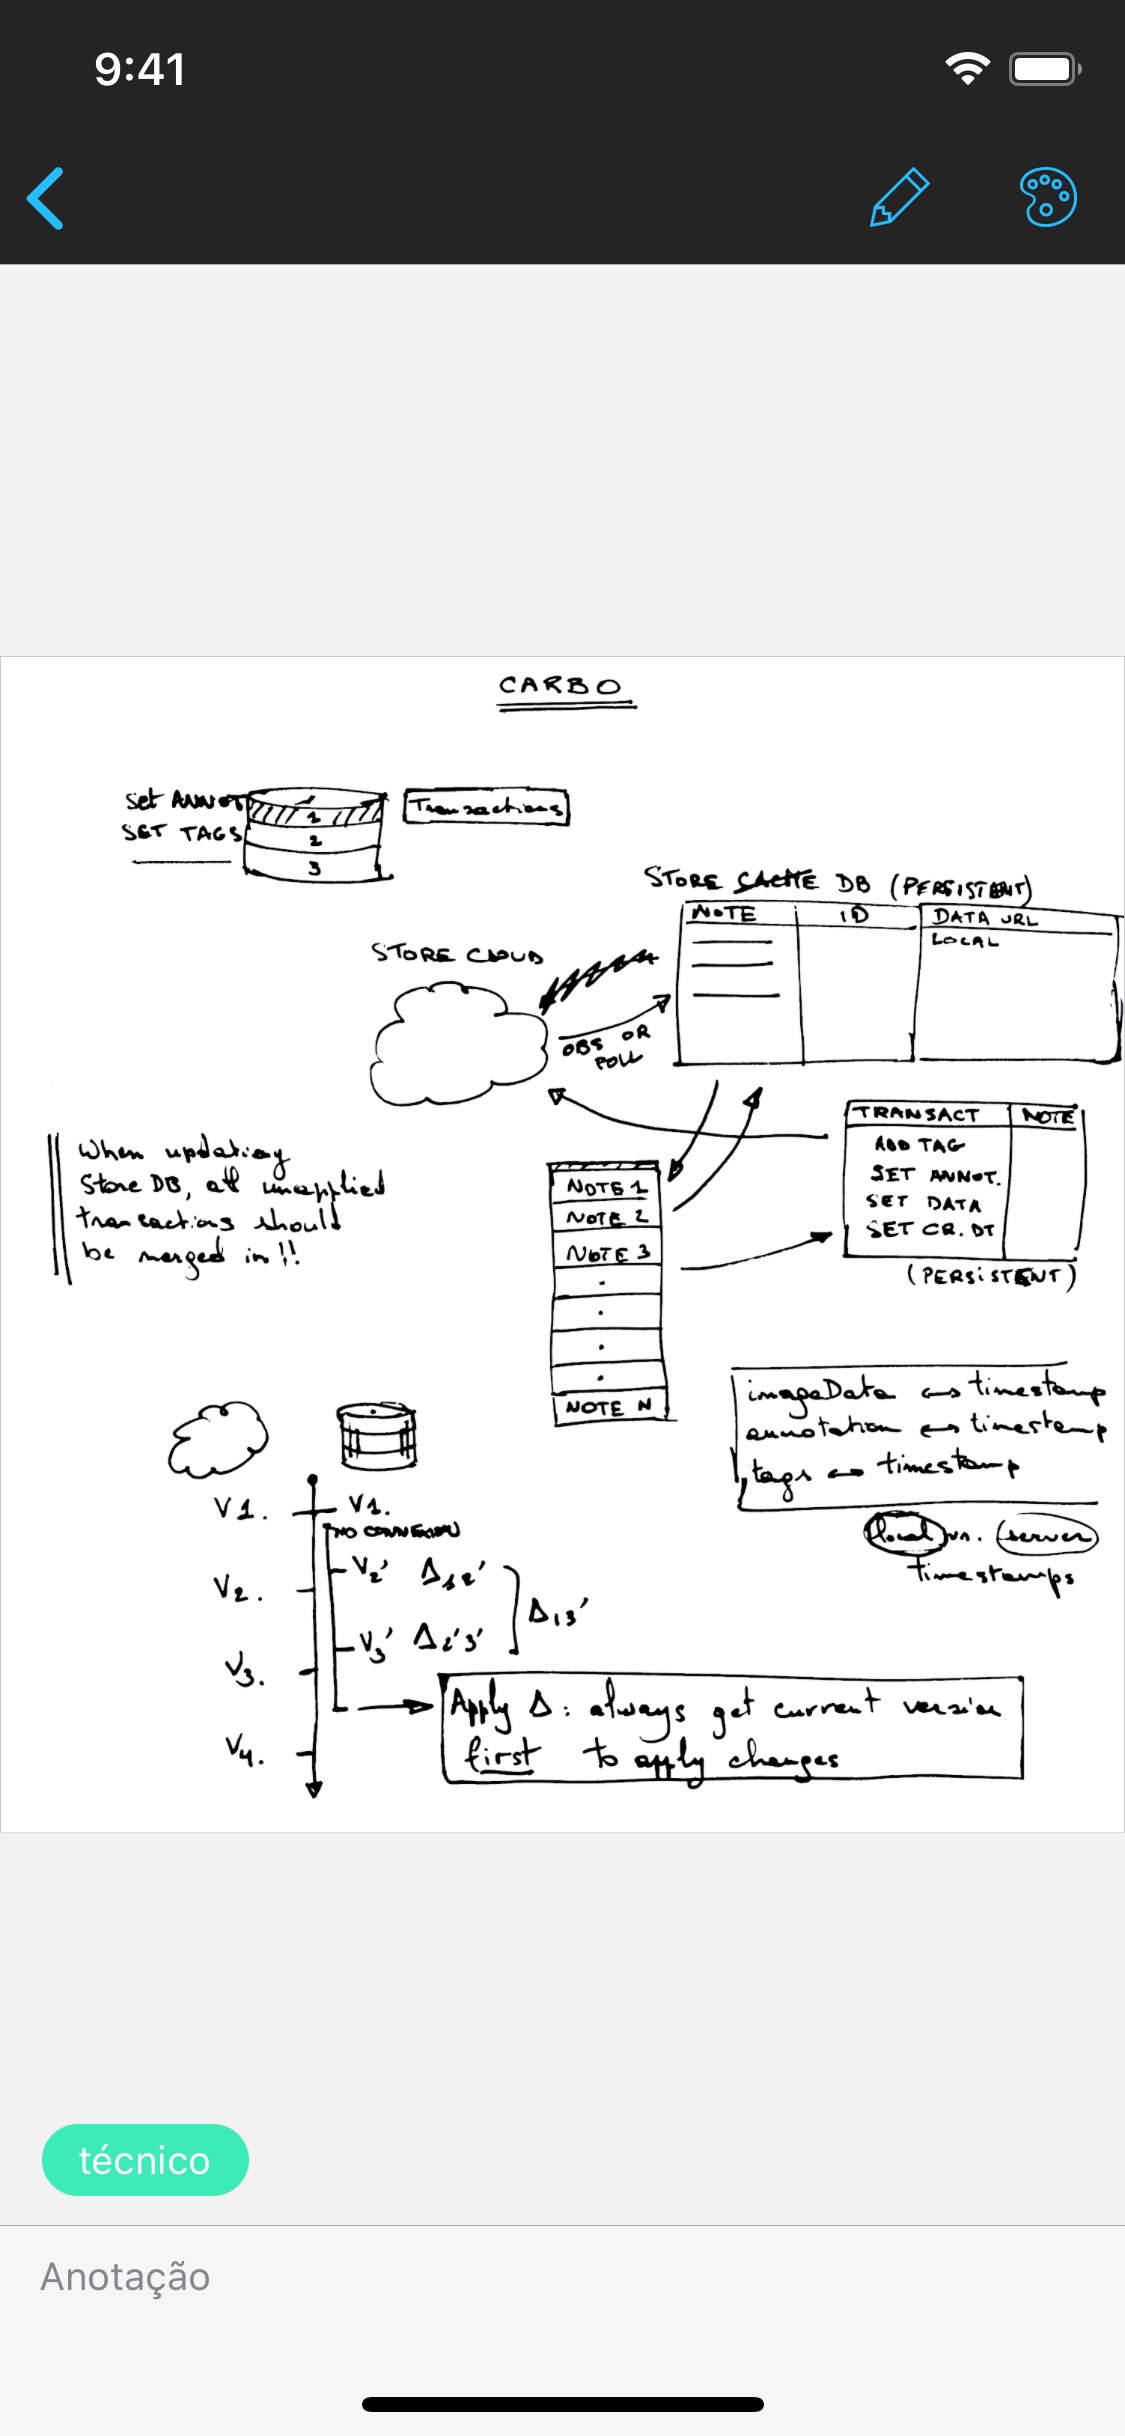 9:41
CARBO
Set ANNOT
SET TAGS
1
2
3
Transactions
STORE CACHE DB (PERSISTENT)
NOTE ID DATA URL
LOCAL
STORE CLOUD
OBS OR
POLL
TRANSACT NOTE
ADD TAG
SET ANNOT.
SET DATA
SET CR. DT
(PERSISTENT)
When updating
Store DB, all unapplied
transactions should
be merged in!!
NOTE 1
NOTE 2
NOTE 3
NOTE N
imageData ↔ timestamp
annotation ↔ timestamp
tags ↔ timestamp
local vs. server
timestamps
V1. V1.
NO CONNEXION
V2. V2' Δ12'
Δ13'
V3. V3' Δ2'3'
V4.
Apply Δ: always get current version
first to apply changes
técnico
Anotação